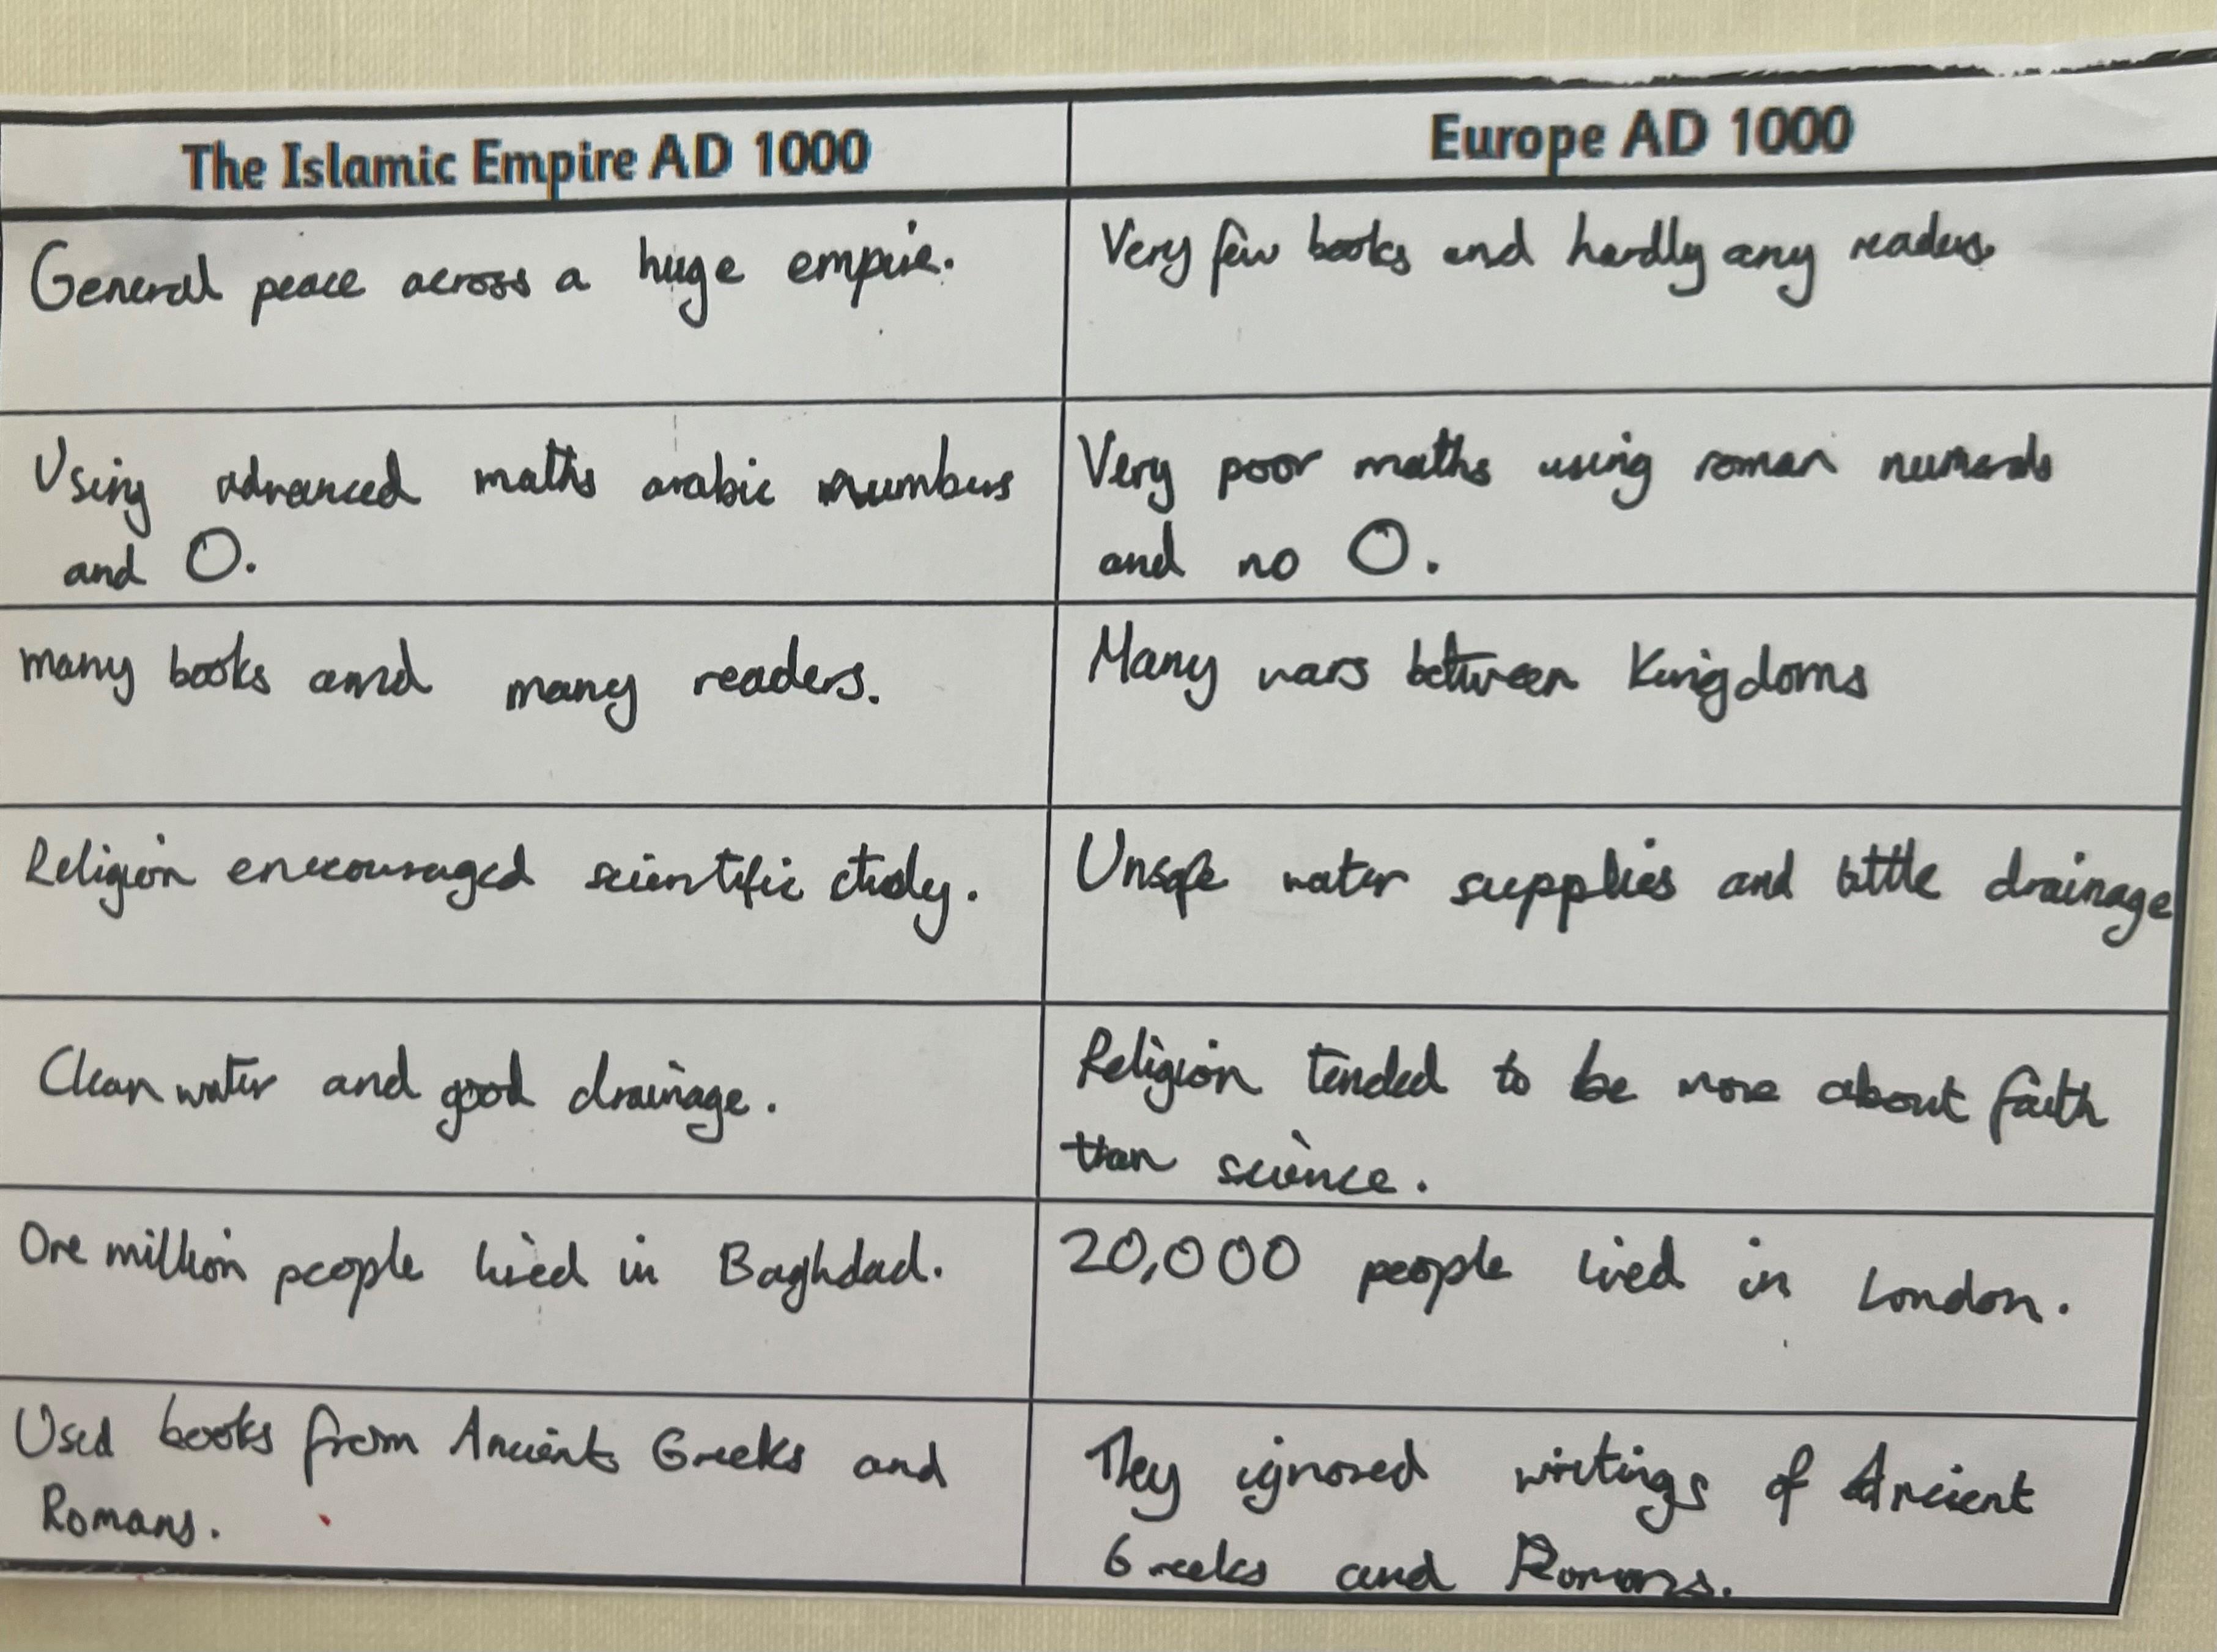 The Islamic Empire AD 1000
Europe AD 1000
General peace across a huge empire.
Very few books and hardly any readers
Using advanced maths arabic numbers
and 0.
Very poor maths using roman numerals
and no 0.
many books and many readers.
Many wars between Kingdoms
Religion encouraged scientific study.
Unsafe water supplies and little drainage
Clean water and good drainage.
Religion tended to be more about faith
than science.
One million people lived in Baghdad.
20,000 people lived in London.
Used books from Ancient Greeks and
Romans.
They ignored writings of Ancient
Greeks and Romans.